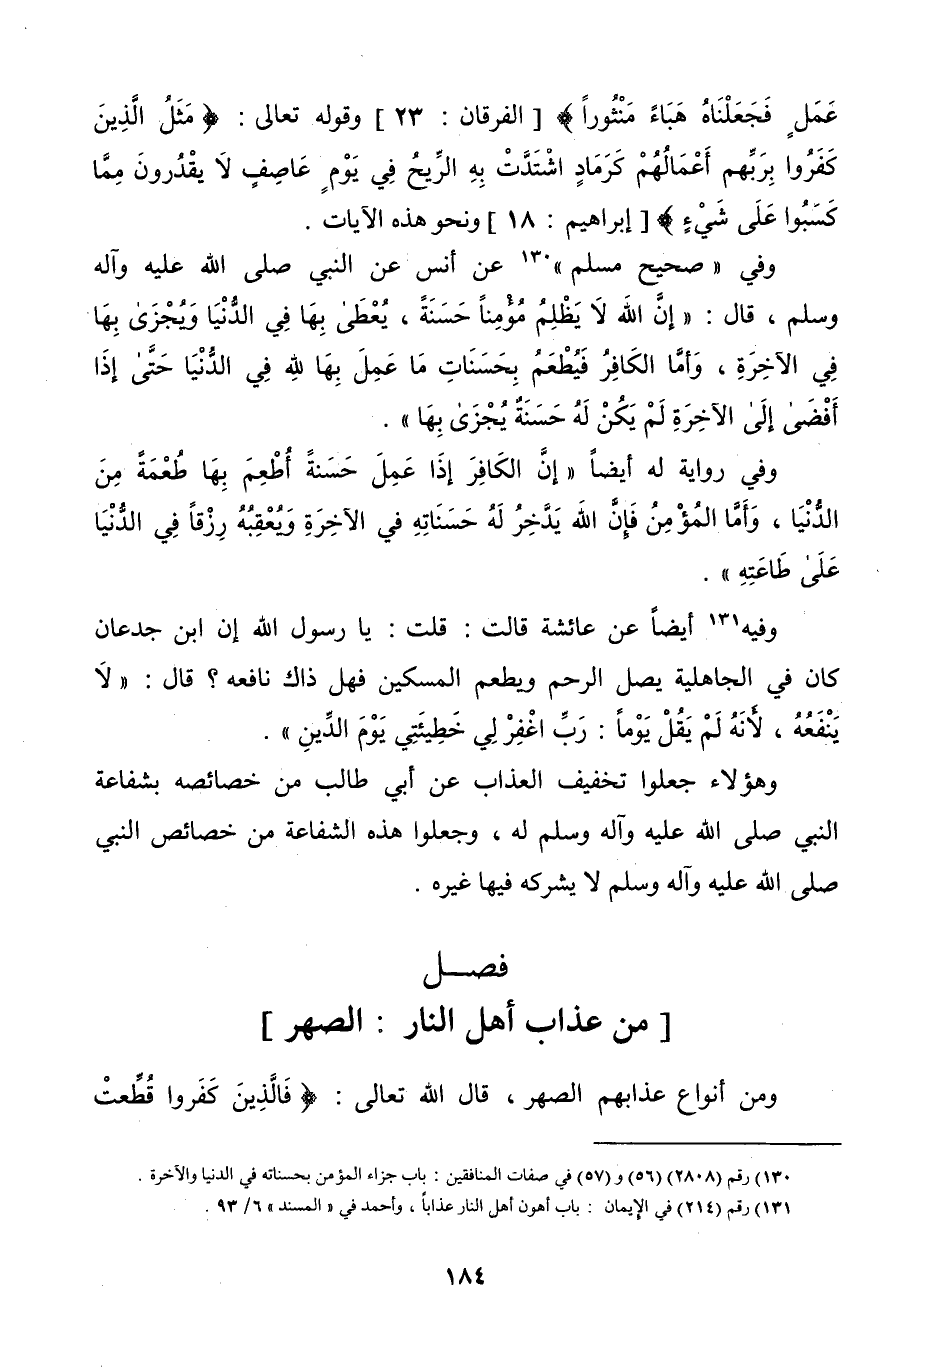 عَمَلٍ فَجَعَلْنَاهُ هَبَاءً مَنْثُوراً ﴾ [ الفرقان : ٢٣ ] وقوله تعالى : ﴿ مَثَلُ الَّذِينَ
كَفَرُوا بِرَبِّهِم أَعْمَالُهُمْ كَرَمَادٍ اشْتَدَّتْ بِهِ الرِّيحُ فِي يَوْمٍ عَاصِفٍ لَا يَقْدُرونَ مِمَّا
كَسَبُوا عَلَى شَيْءٍ ﴾ [ إبراهيم : ١٨ ] ونحو هذه الآيات .
وفي « صحيح مسلم »١٣٠ عن أنس عن النبي صلى الله عليه وآله
وسلم ، قال : « إنَّ اللهَ لَا يَظْلِمُ مُؤْمِناً حَسَنَةً ، يُعْطَىٰ بِهَا فِي الدُّنْيَا وَيُجْزَىٰ بِهَا
فِي الآخِرَةِ ، وَأمَّا الكَافِرُ فَيُطْعَمُ بِحَسَنَاتِ مَا عَمِلَ بِهَا للهِ فِي الدُّنْيَا حَتَّىٰ إذَا
أَفْضَىٰ إلَىٰ الآخِرَةِ لَمْ يَكُنْ لَهُ حَسَنَةٌ يُجْزَىٰ بِهَا » .
وفي رواية له أيضاً « إنَّ الكَافِرَ إذَا عَمِلَ حَسَنةً أُطْعِمَ بِهَا طُعْمَةً مِنَ
الدُّنْيَا ، وَأَمَّا المُؤْمِنُ فَإِنَّ اللهَ يَدَّخِرُ لَهُ حَسَنَاتِهِ في الآخِرَةِ وَيُعْقِبُهُ رِزْقاً فِي الدُّنْيَا
عَلَىٰ طَاعَتِهِ » .
وفيه١٣١ أيضاً عن عائشة قالت : قلت : يا رسول الله إن ابن جدعان
كان في الجاهلية يصل الرحم ويطعم المسكين فهل ذاك نافعه ؟ قال : « لَا
يَنْفَعُهُ ، لأَنَهُ لَمْ يَقُلْ يَوْماً : رَبِّ اغْفِرْ لِي خَطِيئَتِي يَوْمَ الدِّينِ » .
وهؤلاء جعلوا تخفيف العذاب عن أبي طالب من خصائصه بشفاعة
النبي صلى الله عليه وآله وسلم له ، وجعلوا هذه الشفاعة من خصائص النبي
صلى الله عليه وآله وسلم لا يشركه فيها غيره .
فصـــل
[ من عذاب أهل النار : الصهر ]
ومن أنواع عذابهم الصهر ، قال الله تعالى : ﴿ فَالَّذِينَ كَفَروا قُطِّعتْ
١٣٠) رقم (٢٨٠٨) (٥٦) و (٥٧) في صفات المنافقين : باب جزاء المؤمن بحسناته في الدنيا والآخرة .
١٣١) رقم (٢١٤) في الإيمان : باب أهون أهل النار عذاباً ، وأحمد في « المسند » ٦/ ٩٣ .
١٨٤